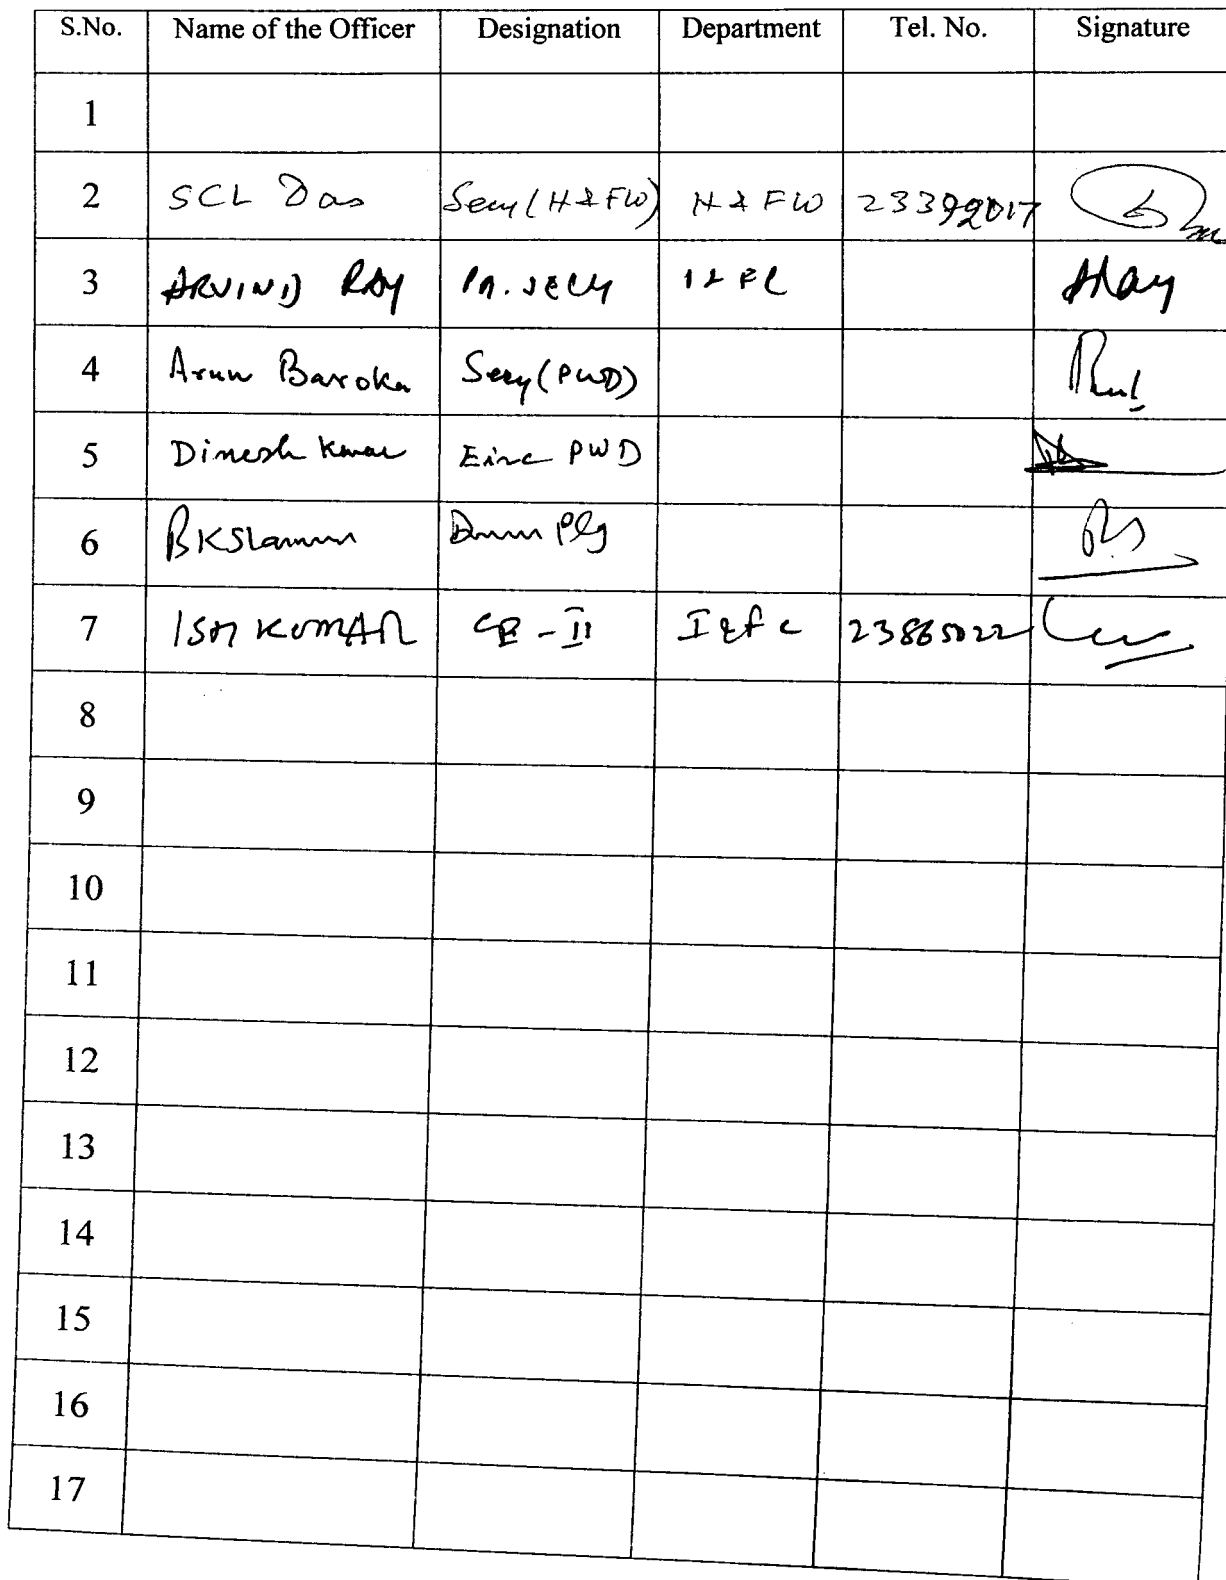 S.No. Name of the Officer Designation Department Tel. No. Signature
1
2 SCL Das Secy (H&FW) H & FW 23392017
3 ARVIND RAY PR. SECY I&FC
4 Arun Baroka Secy (PWD)
5 Dinesh Kumar Einc PWD
6 Plg
7 ISH KUMAR CE-II I&fc 23865022
8
9
10
11
12
13
14
15
16
17